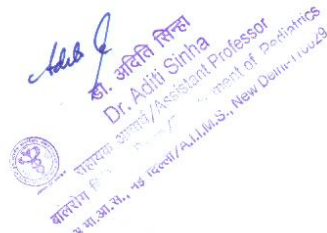 डा. अदिति सिन्हा
Dr. Aditi Sinha
सहायक आचार्य/Assistant Professor
बालरोग of Pediatrics
नई दिल्ली/A.I.I.M.S., New Delhi-110029